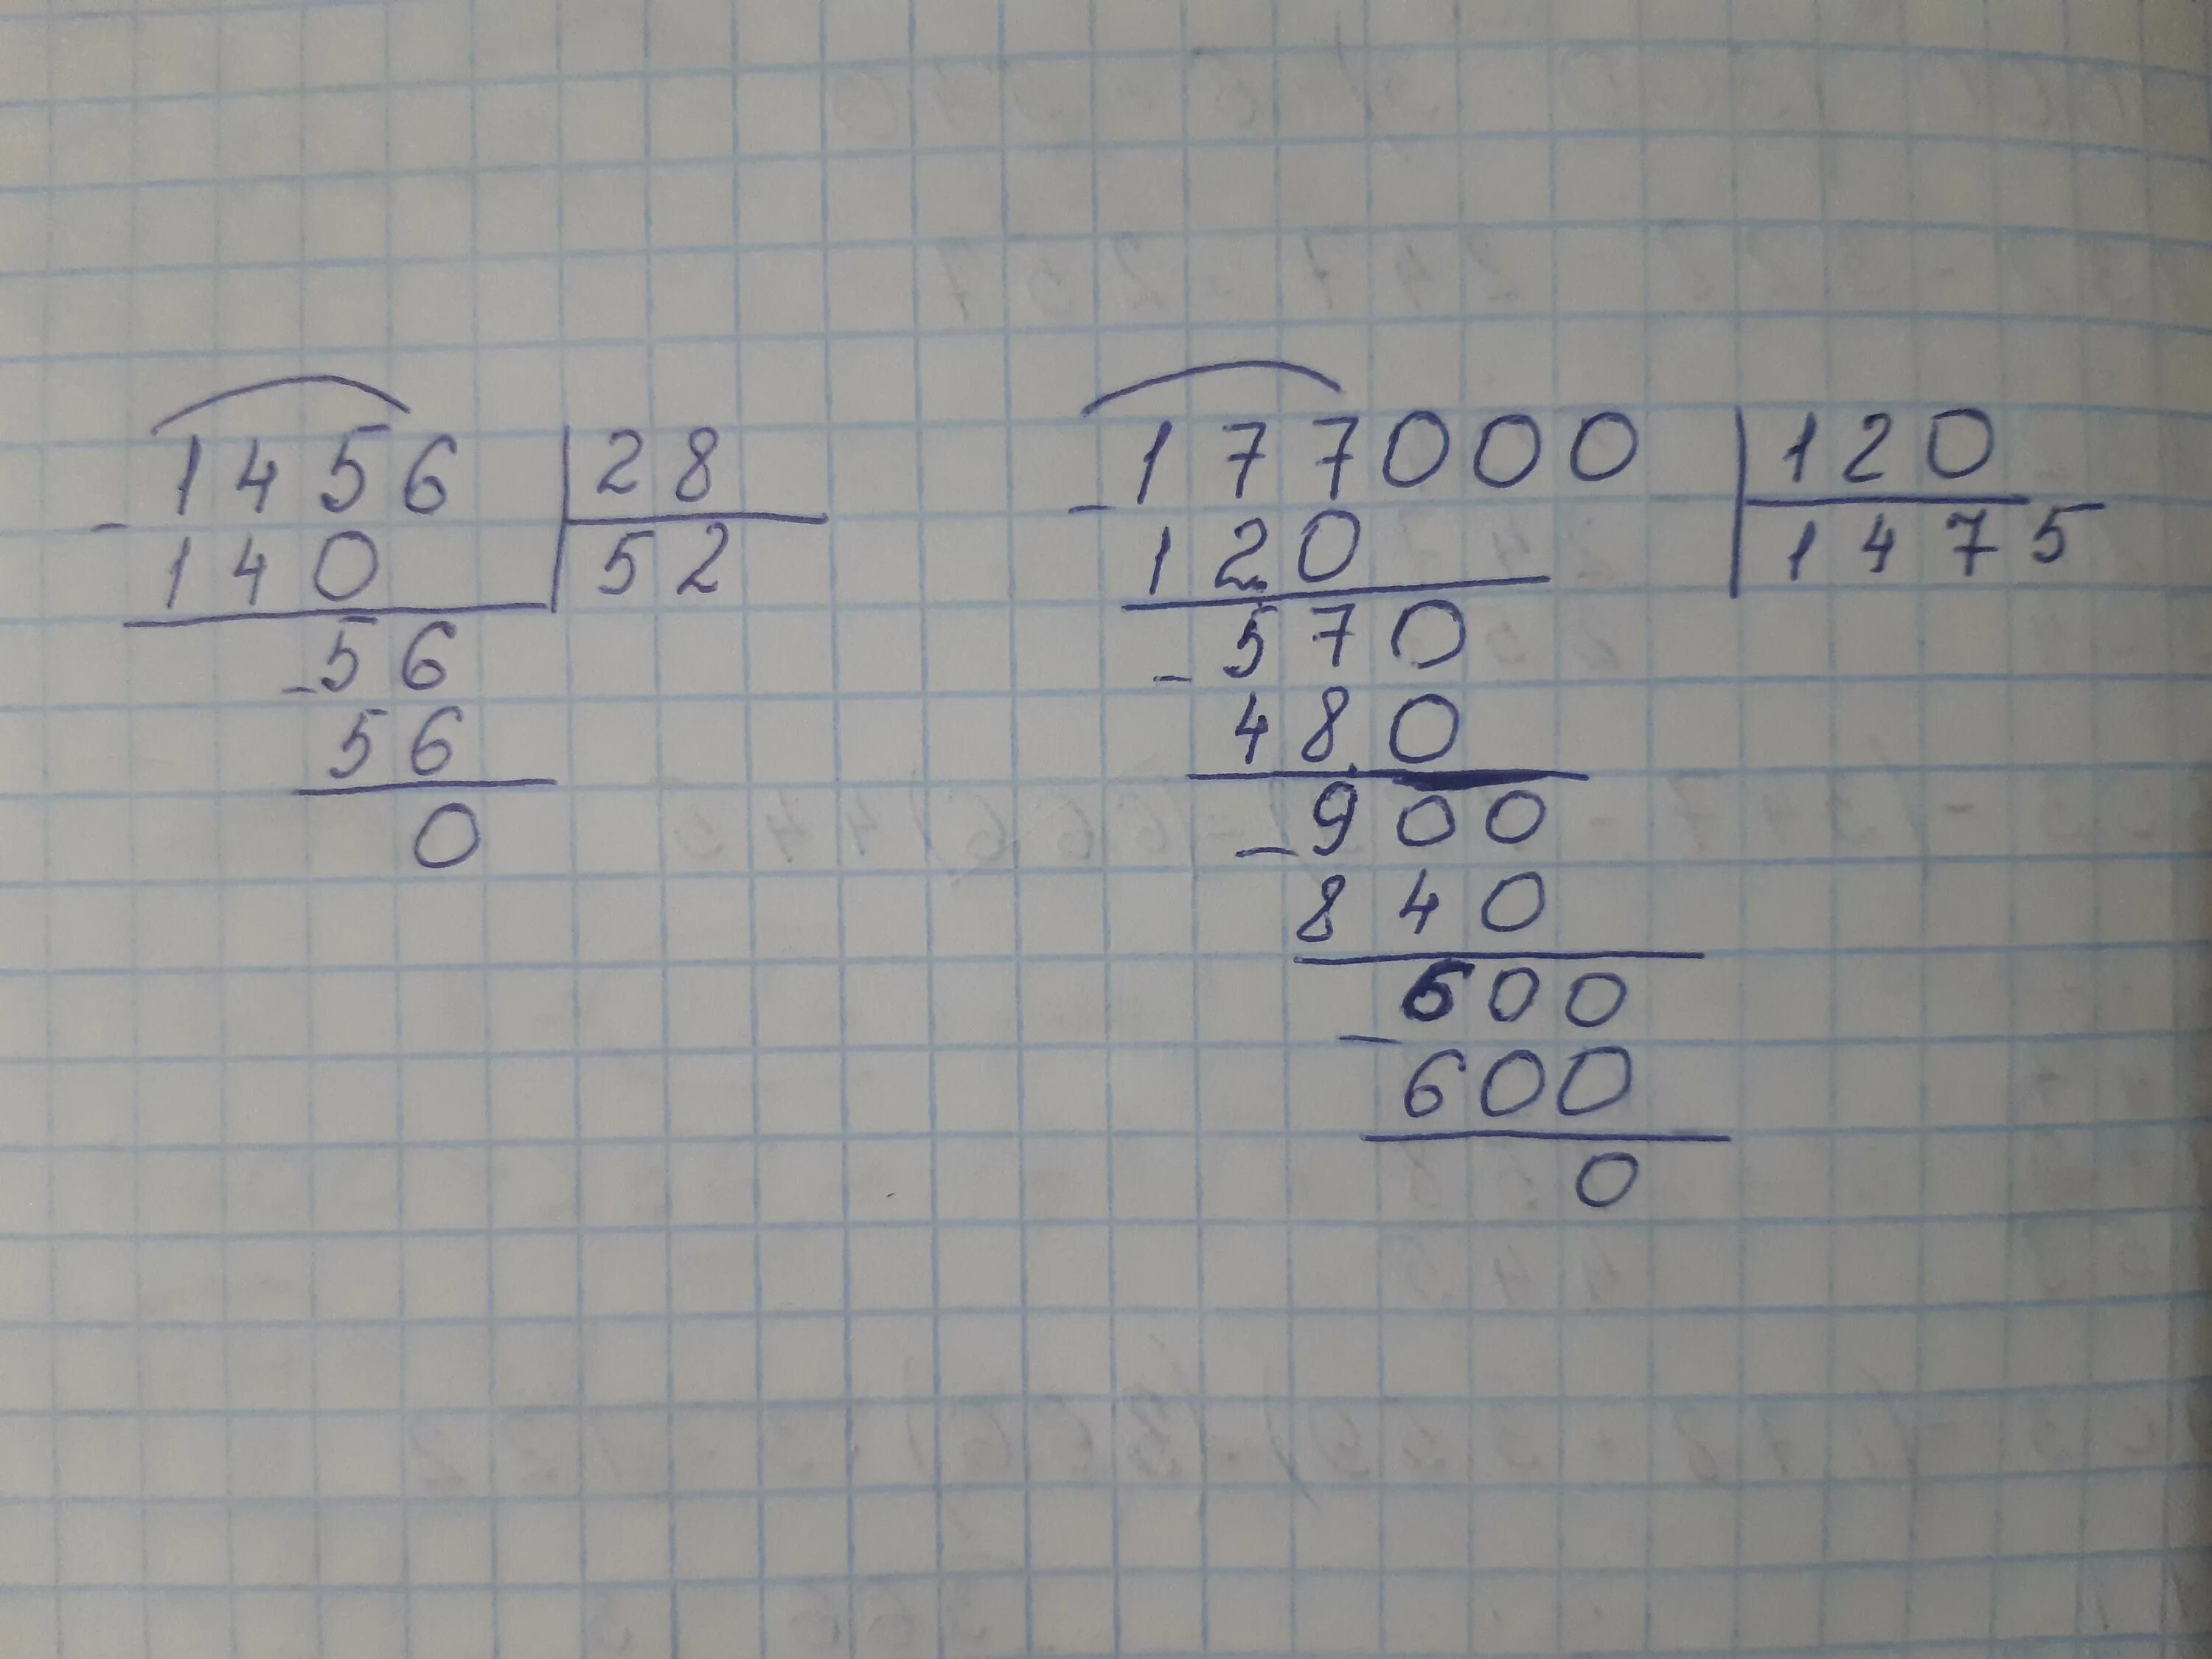 1456 | 28
- 140 | 52
- 56
56
0
177000 | 120
- 120 | 1475
- 570
480
- 900
840
- 600
600
0